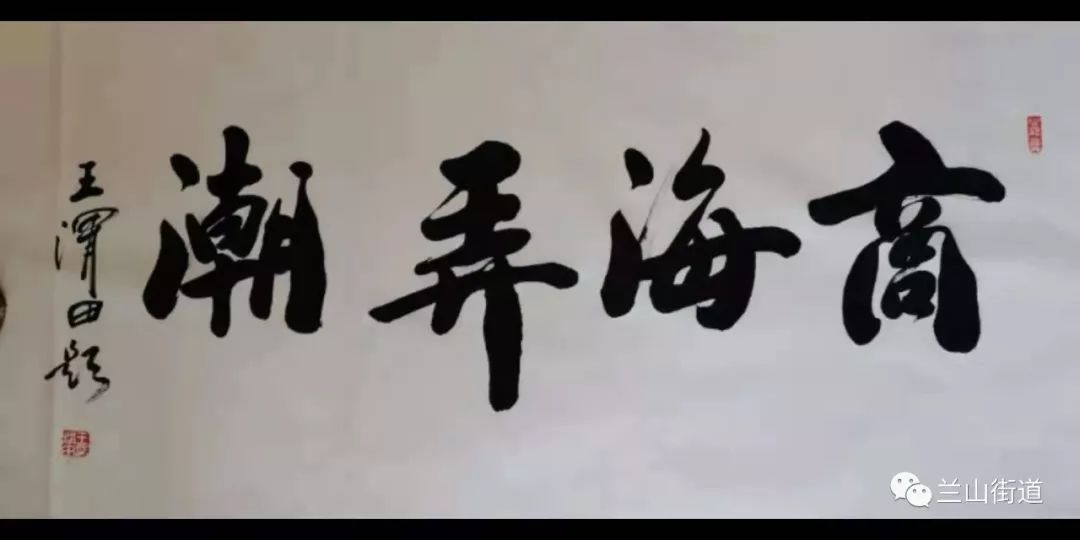 商海弄潮
王渭田题
兰山街道